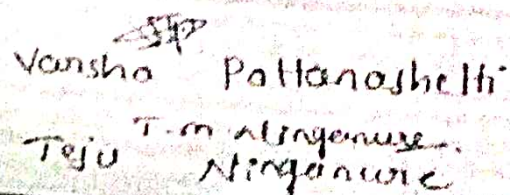 Varsha Pattanashetti
T.M. Ninganure.
Teju Ninganure